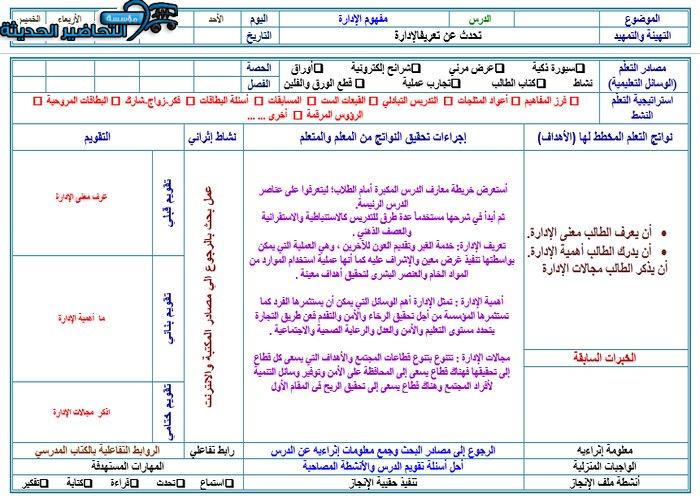 الموضوع الدرس مفهوم الإدارة اليوم الأحد الأربعاء الخميس
مؤسسة التحاضير الحديثة
التهيئة والتمهيد تحدث عن تعريفالإدارة التاريخ
مصادر التعلم (الوسائل التعليمية)
سبورة ذكية عرض مرئي شرائح إلكترونية أوراق
نشاط كتاب الطالب تجارب عملية قطع الورق والفلين
الحصة
الفصل
استراتيجية التعلم النشط
فرز المفاهيم أعواد المثلجات التدريس التبادلي القبعات الست المسابقات أسئلة البطاقات فكر.زواج.شارك البطاقات المروحية
الرؤوس المرقمة أخرى ... ...
نواتج التعلم المخطط لها (الأهداف) إجراءات تحقيق النواتج من المعلم والمتعلم نشاط إثرائي التقويم
أن يعرف الطالب معنى الإدارة.
أن يدرك الطالب أهمية الإدارة.
أن يذكر الطالب مجالات الإدارة
الخبرات السابقة
أستعرض خريطة معارف الدرس المكبرة أمام الطلاب؛ ليتعرفوا على عناصر
الدرس الرئيسة.
ثم أبدأ في شرحها مستخدماً عدة طرق للتدريس كالاستنباطية والاستقرائية
والعصف الذهني .
تعريف الإدارة: خدمة الغير وتقديم العون للآخرين ، وهي العملية التي يمكن
بواسطتها تنفيذ غرض معين والإشراف عليه كما أنها عملية استخدام الموارد من
المواد الخام والعنصر البشرى لتحقيق أهداف معينة .
أهمية الإدارة : تمثل الإدارة أهم الوسائل التي يمكن أن يستثمرها الفرد كما
تستثمرها المؤسسة من أجل تحقيق الرخاء والأمن والتقدم فعن طريق التجارة
يتحدد مستوى التعليم والأمن والعدل والرعاية الصحية والاجتماعية .
مجالات الإدارة : تتنوع بتنوع قطاعات المجتمع والأهداف التي يسعى كل قطاع
إلى تحقيقها فهناك قطاع يسعى إلى المحافظة على الأمن وتوفير وسائل التنمية
لأفراد المجتمع وهناك قطاع يسعى إلى تحقيق الربح فى المقام الأول
عمل بحث بالرجوع الى مصادر المكتبة والانترنت
تقويم قبلي
عرف معنى الإدارة
تقويم بنائي
ما أهمية الإدارة
تقويم ختامي
اذكر مجالات الإدارة
معلومة إثرائيه الرجوع إلى مصادر البحث وجمع معلومات إثراءيه عن الدرس رابط تفاعلي الروابط التفاعلية بالكتاب المدرسي
الواجبات المنزلية أحل أسئلة تقويم الدرس والأنشطة المصاحبة المهارات المستهدفة
أنشطة ملف الإنجاز تنفيذ حقيبة الإنجاز استماع تحدث قراءة كتابة تفكير